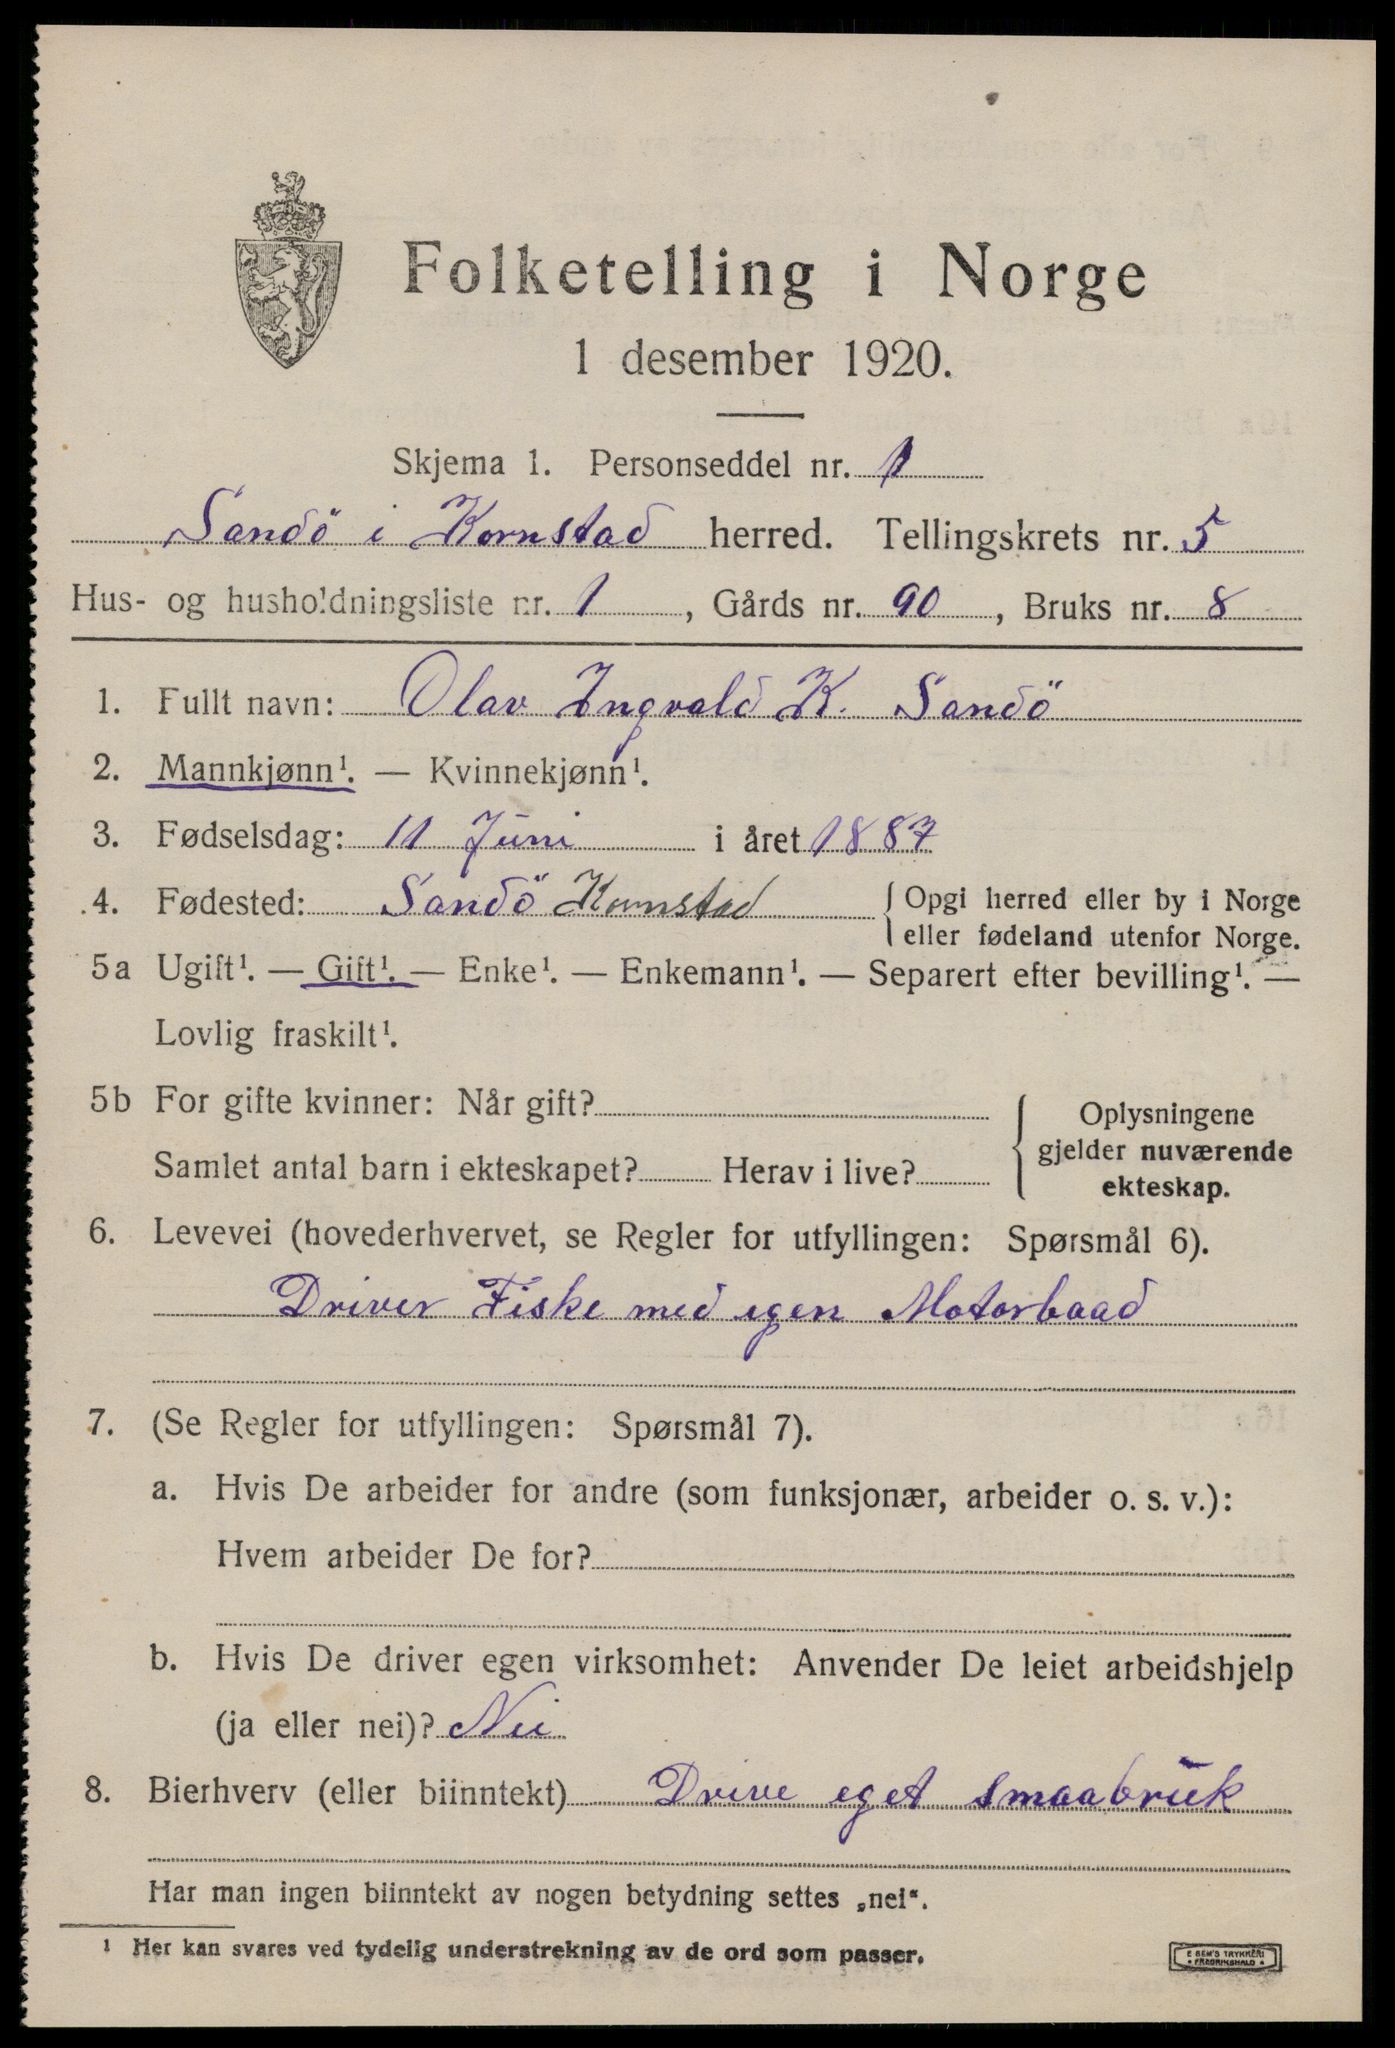 Folketelling i Norge
1 desember 1920.
Skjema 1. Personseddel nr. 1
Sandö i Kornstad herred. Tellingskrets nr. 5
Hus- og husholdningsliste nr. 1, Gårds nr. 90, Bruks nr. 8
1. Fullt navn: Olav Ingvald K. Sandö
2. Mannkjønn¹. — Kvinnekjønn¹.
3. Fødselsdag: 11 Juni i året 1887
4. Fødested: Sandö Kornstad { Opgi herred eller by i Norge
eller fødeland utenfor Norge.
5a Ugift¹. — Gift¹. — Enke¹. — Enkemann¹. — Separert efter bevilling¹. —
Lovlig fraskilt¹.
5b For gifte kvinner: Når gift?
Samlet antal barn i ekteskapet? Herav i live?
Oplysningene
gjelder nuværende
ekteskap.
6. Levevei (hovederhvervet, se Regler for utfyllingen: Spørsmål 6).
Driver Fiske med egen Motorbaad
7. (Se Regler for utfyllingen: Spørsmål 7).
a. Hvis De arbeider for andre (som funksjonær, arbeider o. s. v.):
Hvem arbeider De for?
b. Hvis De driver egen virksomhet: Anvender De leiet arbeidshjelp
(ja eller nei)? Nei
8. Bierhverv (eller biinntekt) Drive eget smaabruk
Har man ingen biinntekt av nogen betydning settes „nei“.
¹ Her kan svares ved tydelig understrekning av de ord som passer.
E SEM'S TRYKKERI
* FREDRIKSHALD *